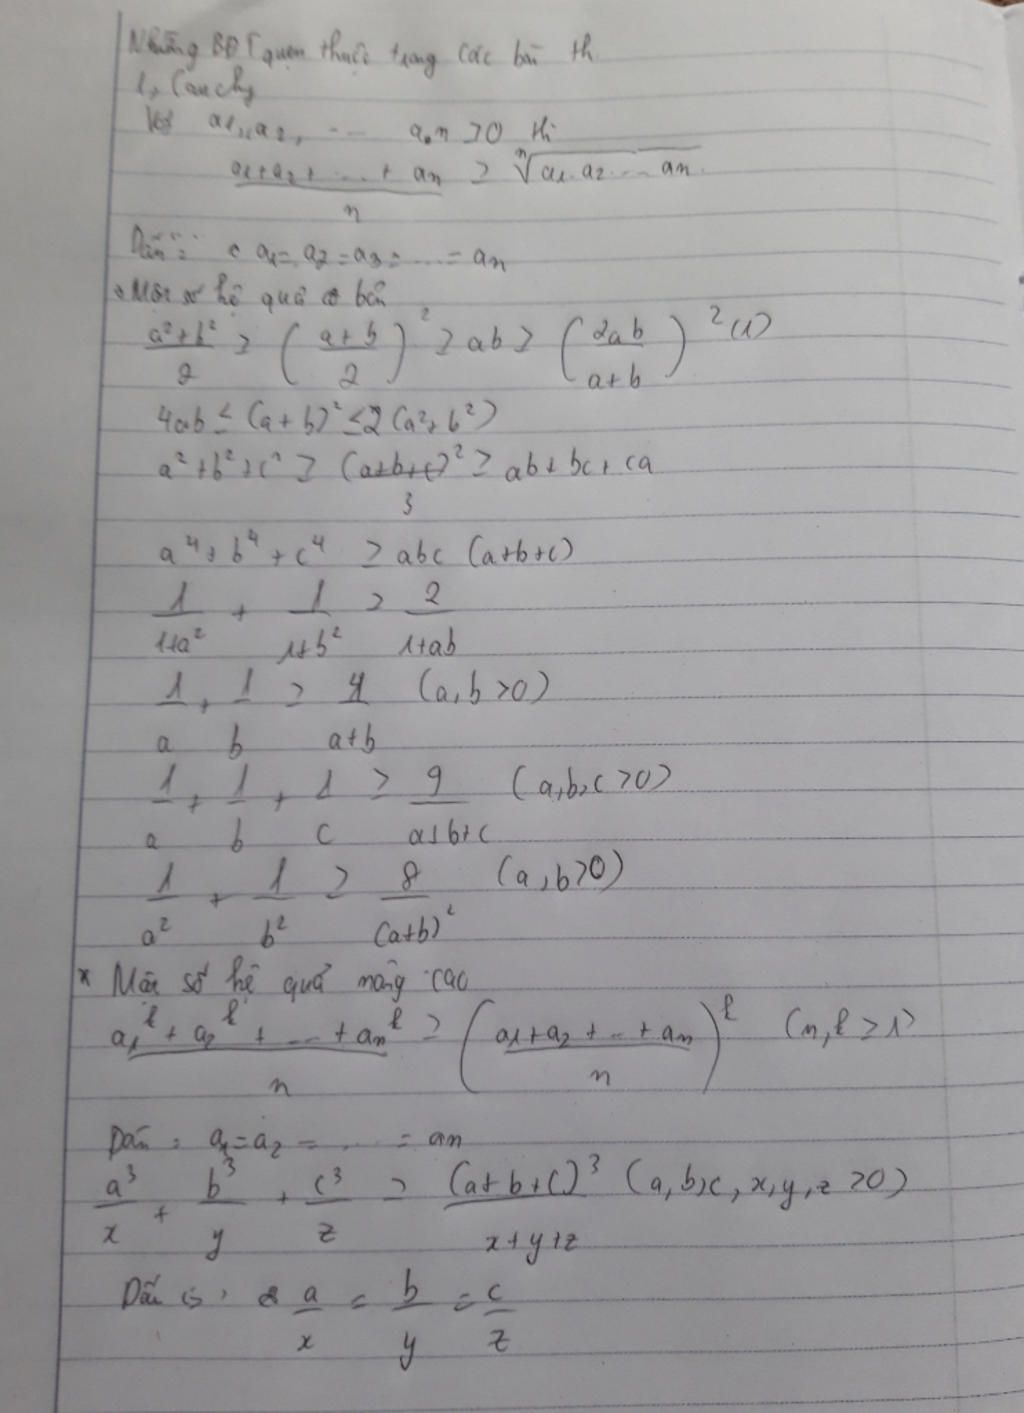 Những BĐT quen thuộc trong các bài th
1, Cauchy
Với a1, a2, ... a.n >0 thì
(a1+a2+...+an)/n ≥ ⁿ√(a1.a2...an)
Dấu "=" a1= a2=a3=...=an
* Một số hệ quả cơ bản
(a²+b²)/2 ≥ ((a+b)/2)² ≥ ab ≥ (2ab/(a+b))² (1)
4ab ≤ (a+b)² ≤ 2(a²+b²)
a²+b²+c² ≥ (a+b+c)²/3 ≥ ab+bc+ca
a⁴+b⁴+c⁴ ≥ abc (a+b+c)
1/(1+a²) + 1/(1+b²) ≥ 2/(1+ab)
1/a + 1/b ≥ 4/(a+b) (a,b>0)
1/a + 1/b + 1/c ≥ 9/(a+b+c) (a,b,c>0)
1/a² + 1/b² ≥ 8/(a+b)² (a,b>0)
* Một số hệ quả nâng cao
(a1^k + a2^k + ... + an^k)/n ≥ ((a1+a2+...+an)/n)^k (n,k ≥ 1)
Dấu = a1=a2=...=an
a³/x + b³/y + c³/z ≥ (a+b+c)³/(x+y+z) (a,b,c,x,y,z >0)
Dấu a/x = b/y = c/z